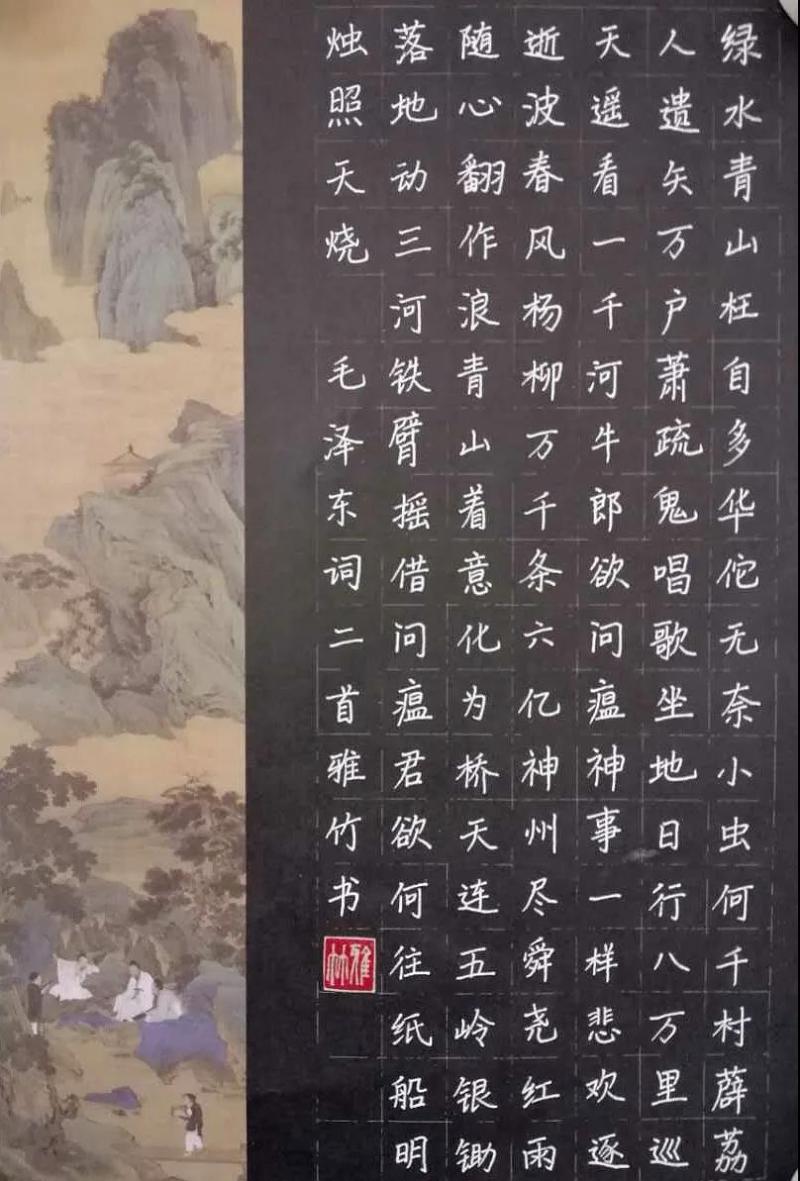 绿水青山枉自多华佗无奈小虫何千村薜荔
人遗矢万户萧疏鬼唱歌坐地日行八万里巡
天遥看一千河牛郎欲问瘟神事一样悲欢逐
逝波春风杨柳万千条六亿神州尽舜尧红雨
随心翻作浪青山着意化为桥天连五岭银锄
落地动三河铁臂摇借问瘟君欲何往纸船明
烛照天烧 毛泽东词二首雅竹书
雅竹